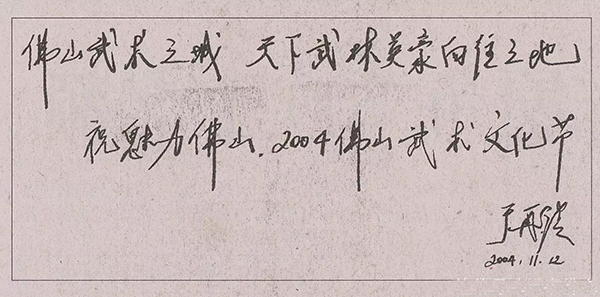 佛山武术之城 天下武林英豪向往之地
祝魅力佛山.2004佛山武术文化节
于再清
2004.11.12